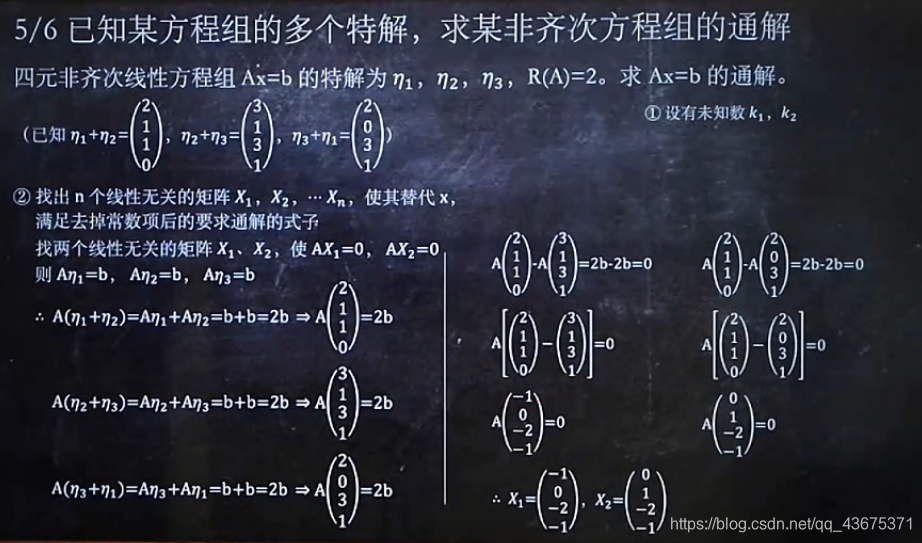 5/6 已知某方程组的多个特解，求某非齐次方程组的通解
四元非齐次线性方程组 Ax=b 的特解为 η₁，η₂，η₃，R(A)=2。求 Ax=b 的通解。
（已知 η₁+η₂=(2 1 1 0)，η₂+η₃=(3 1 3 1)，η₃+η₁=(2 0 3 1)）
① 设有未知数 k₁，k₂
② 找出 n 个线性无关的矩阵 X₁，X₂，⋯Xₙ，使其替代 x，
满足去掉常数项后的要求通解的式子
找两个线性无关的矩阵 X₁、X₂，使 AX₁=0，AX₂=0
则 Aη₁=b，Aη₂=b，Aη₃=b
∴ A(η₁+η₂)=Aη₁+Aη₂=b+b=2b ⇒ A(2 1 1 0)=2b
A(η₂+η₃)=Aη₂+Aη₃=b+b=2b ⇒ A(3 1 3 1)=2b
A(η₃+η₁)=Aη₃+Aη₁=b+b=2b ⇒ A(2 0 3 1)=2b
A(2 1 1 0)-A(3 1 3 1)=2b-2b=0
A[(2 1 1 0)−(3 1 3 1)]=0
A(−1 0 −2 −1)=0
A(2 1 1 0)-A(2 0 3 1)=2b-2b=0
A[(2 1 1 0)−(2 0 3 1)]=0
A(0 1 −2 −1)=0
∴ X₁=(−1 0 −2 −1)，X₂=(0 1 −2 −1)
https://blog.csdn.net/qq_43675371